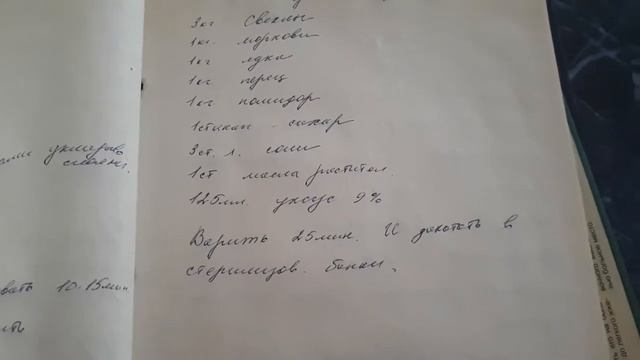 3кг свеклы
1кг. моркови
1кг лука
1кг перец
1кг помидор
1стакан - сахар
3ст. л. соли
1ст масла растител.
125мл уксус 9%
Варить 25мин. И закатать в
стерилизов. банки.
10-15мин